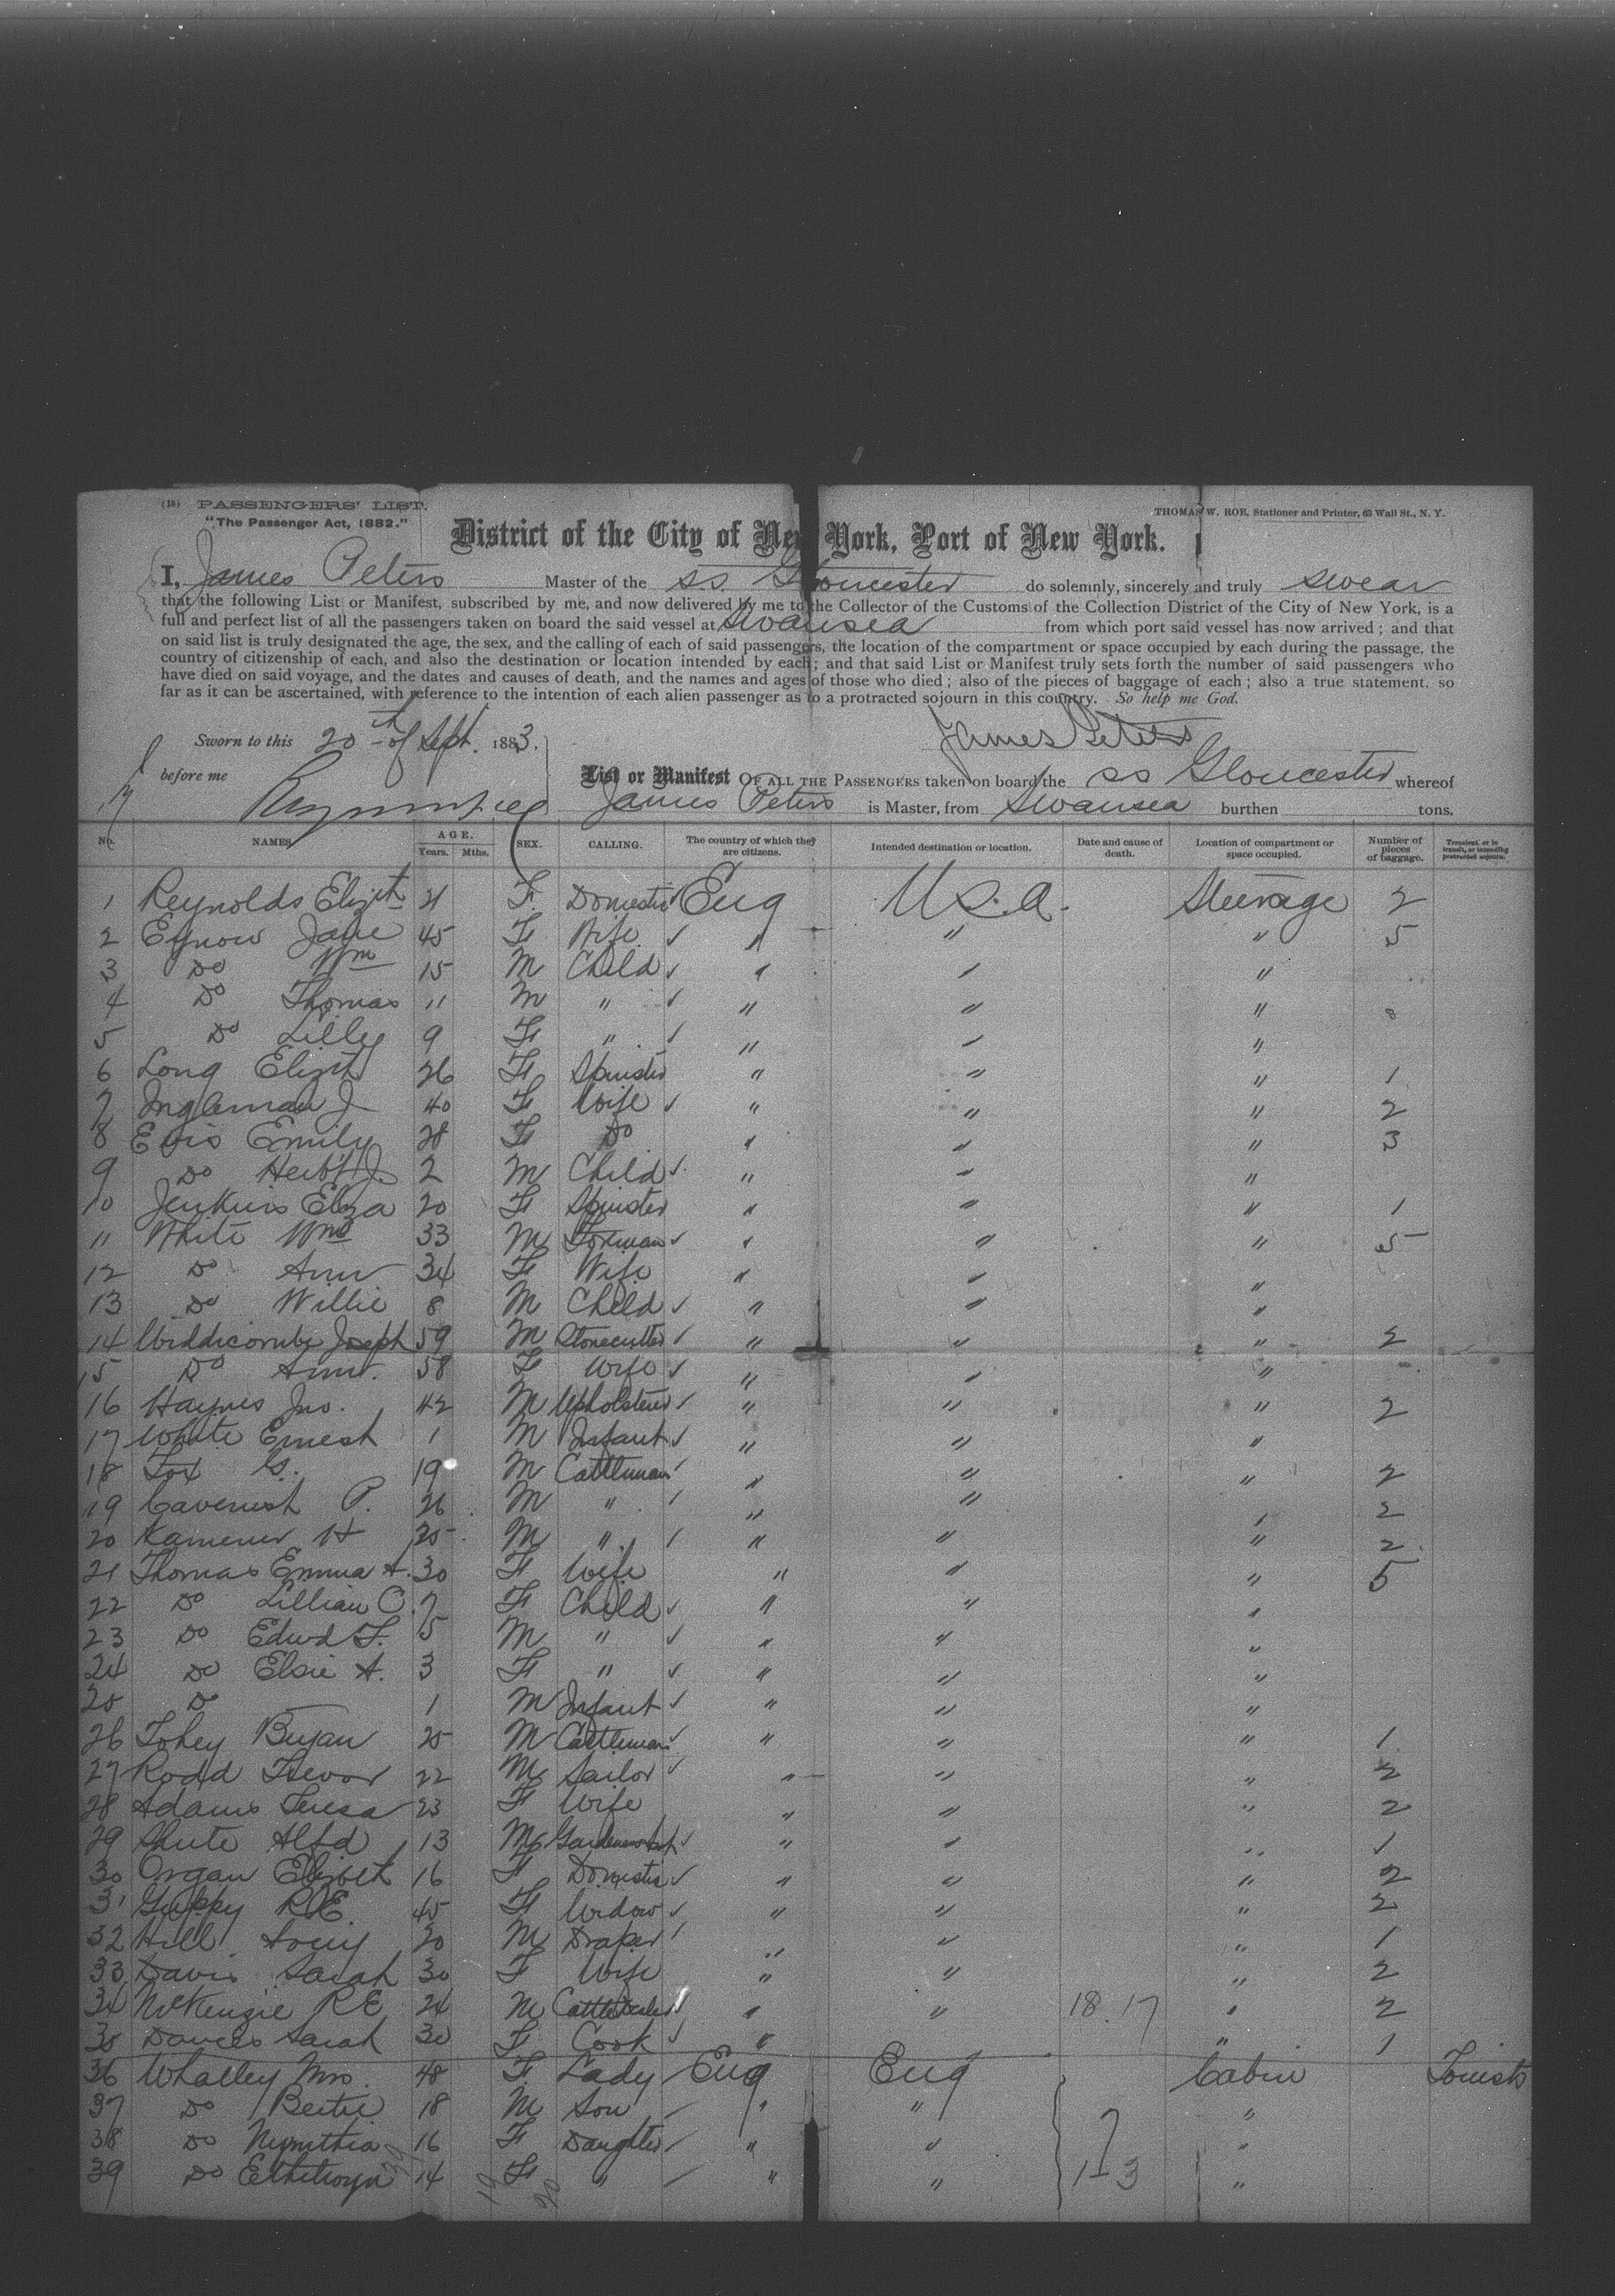 (18) PASSENGERS' LIST.
"The Passenger Act, 1882."
THOMAS W. ROE, Stationer and Printer, 63 Wall St., N. Y.
District of the City of New York, Port of New York.
I, James Peters Master of the SS. Gloucester do solemnly, sincerely and truly swear
that the following List or Manifest, subscribed by me, and now delivered by me to the Collector of the Customs of the Collection District of the City of New York, is a
full and perfect list of all the passengers taken on board the said vessel at Swansea from which port said vessel has now arrived; and that
on said list is truly designated the age, the sex, and the calling of each of said passengers, the location of the compartment or space occupied by each during the passage, the
country of citizenship of each, and also the destination or location intended by each; and that said List or Manifest truly sets forth the number of said passengers who
have died on said voyage, and the dates and causes of death, and the names and ages of those who died; also of the pieces of baggage of each; also a true statement, so
far as it can be ascertained, with reference to the intention of each alien passenger as to a protracted sojourn in this country. So help me God.
Sworn to this 20th of Sept. 1883. James Peters
before me
List or Manifest OF ALL THE PASSENGERS taken on board the SS Gloucester whereof
James Peters is Master, from Swansea burthen tons.
No. NAMES AGE. Years. Mths. SEX. CALLING. The country of which they are citizens. Intended destination or location. Date and cause of death. Location of compartment or space occupied. Number of pieces of baggage. Transient, or in transit, or intending protracted sojourn.
1 Reynolds Elizth 21 F. Domestic Eng U.S.A. Steerage 2
2 Jane 45 F Wife " " " 5
3 Do Wm 15 M Child " " "
4 Do Thomas 11 M " " " "
5 Do Lilly 9 F " " " "
6 Long Elizth 26 F Spinster " " " 1
7 J 40 F Wife " " " 2
8 Emily 28 F Do " " " 3
9 Do Herbt J. 2 M Child " " "
10 Jenkins Eliza 20 F Spinster " " " 1
11 White Wm 33 M " " " 5
12 Do Ann 34 F Wife " " "
13 Do Willie 8 M Child " " "
14 Widdicombe Joseph 59 M Stonecutter " " " 2
15 Do Ann. 58 F Wife " " "
16 Haynes Jno. 42 M Upholsterer " " " 2
17 White Ernest 1 M Infant " " "
18 Fox G. 19 M Cattleman " " " 2
19 P. 26 M " " " " 2
20 H 25 M " " " " 2
21 Thomas Emma A. 30 F Wife " " " 5
22 Do Lillian C. 7 F Child " " "
23 Do Edwd F. 5 M " " " "
24 Do Elsie A. 3 F " " " "
25 Do 1 M Infant " " "
26 Bryan 25 M Cattleman " " " 1
27 Rodd Trevor 22 M Sailor " " " 2
28 Adams Teresa 23 F Wife " " " 2
29 Shute Alfd 13 M " " " 1
30 Organ Elizbeth 16 F Domestic " " " 2
31 Guppy R E. 45 F Widow " " " 2
32 Hill 20 M Draper " " " 1
33 Davis Sarah 30 F Wife " " " 2
34 McKenzie R E 24 M Cattledealer " " 18.17 " 2
35 Davies Sarah 30 F Cook " " " 1
36 Whalley Mrs. 48 F Lady Eng Eng Cabin Tourists
37 Do Bertie 18 M Son " " "
38 Do 16 F Daughter " " "
39 Do 14 F " " " 1-3 "